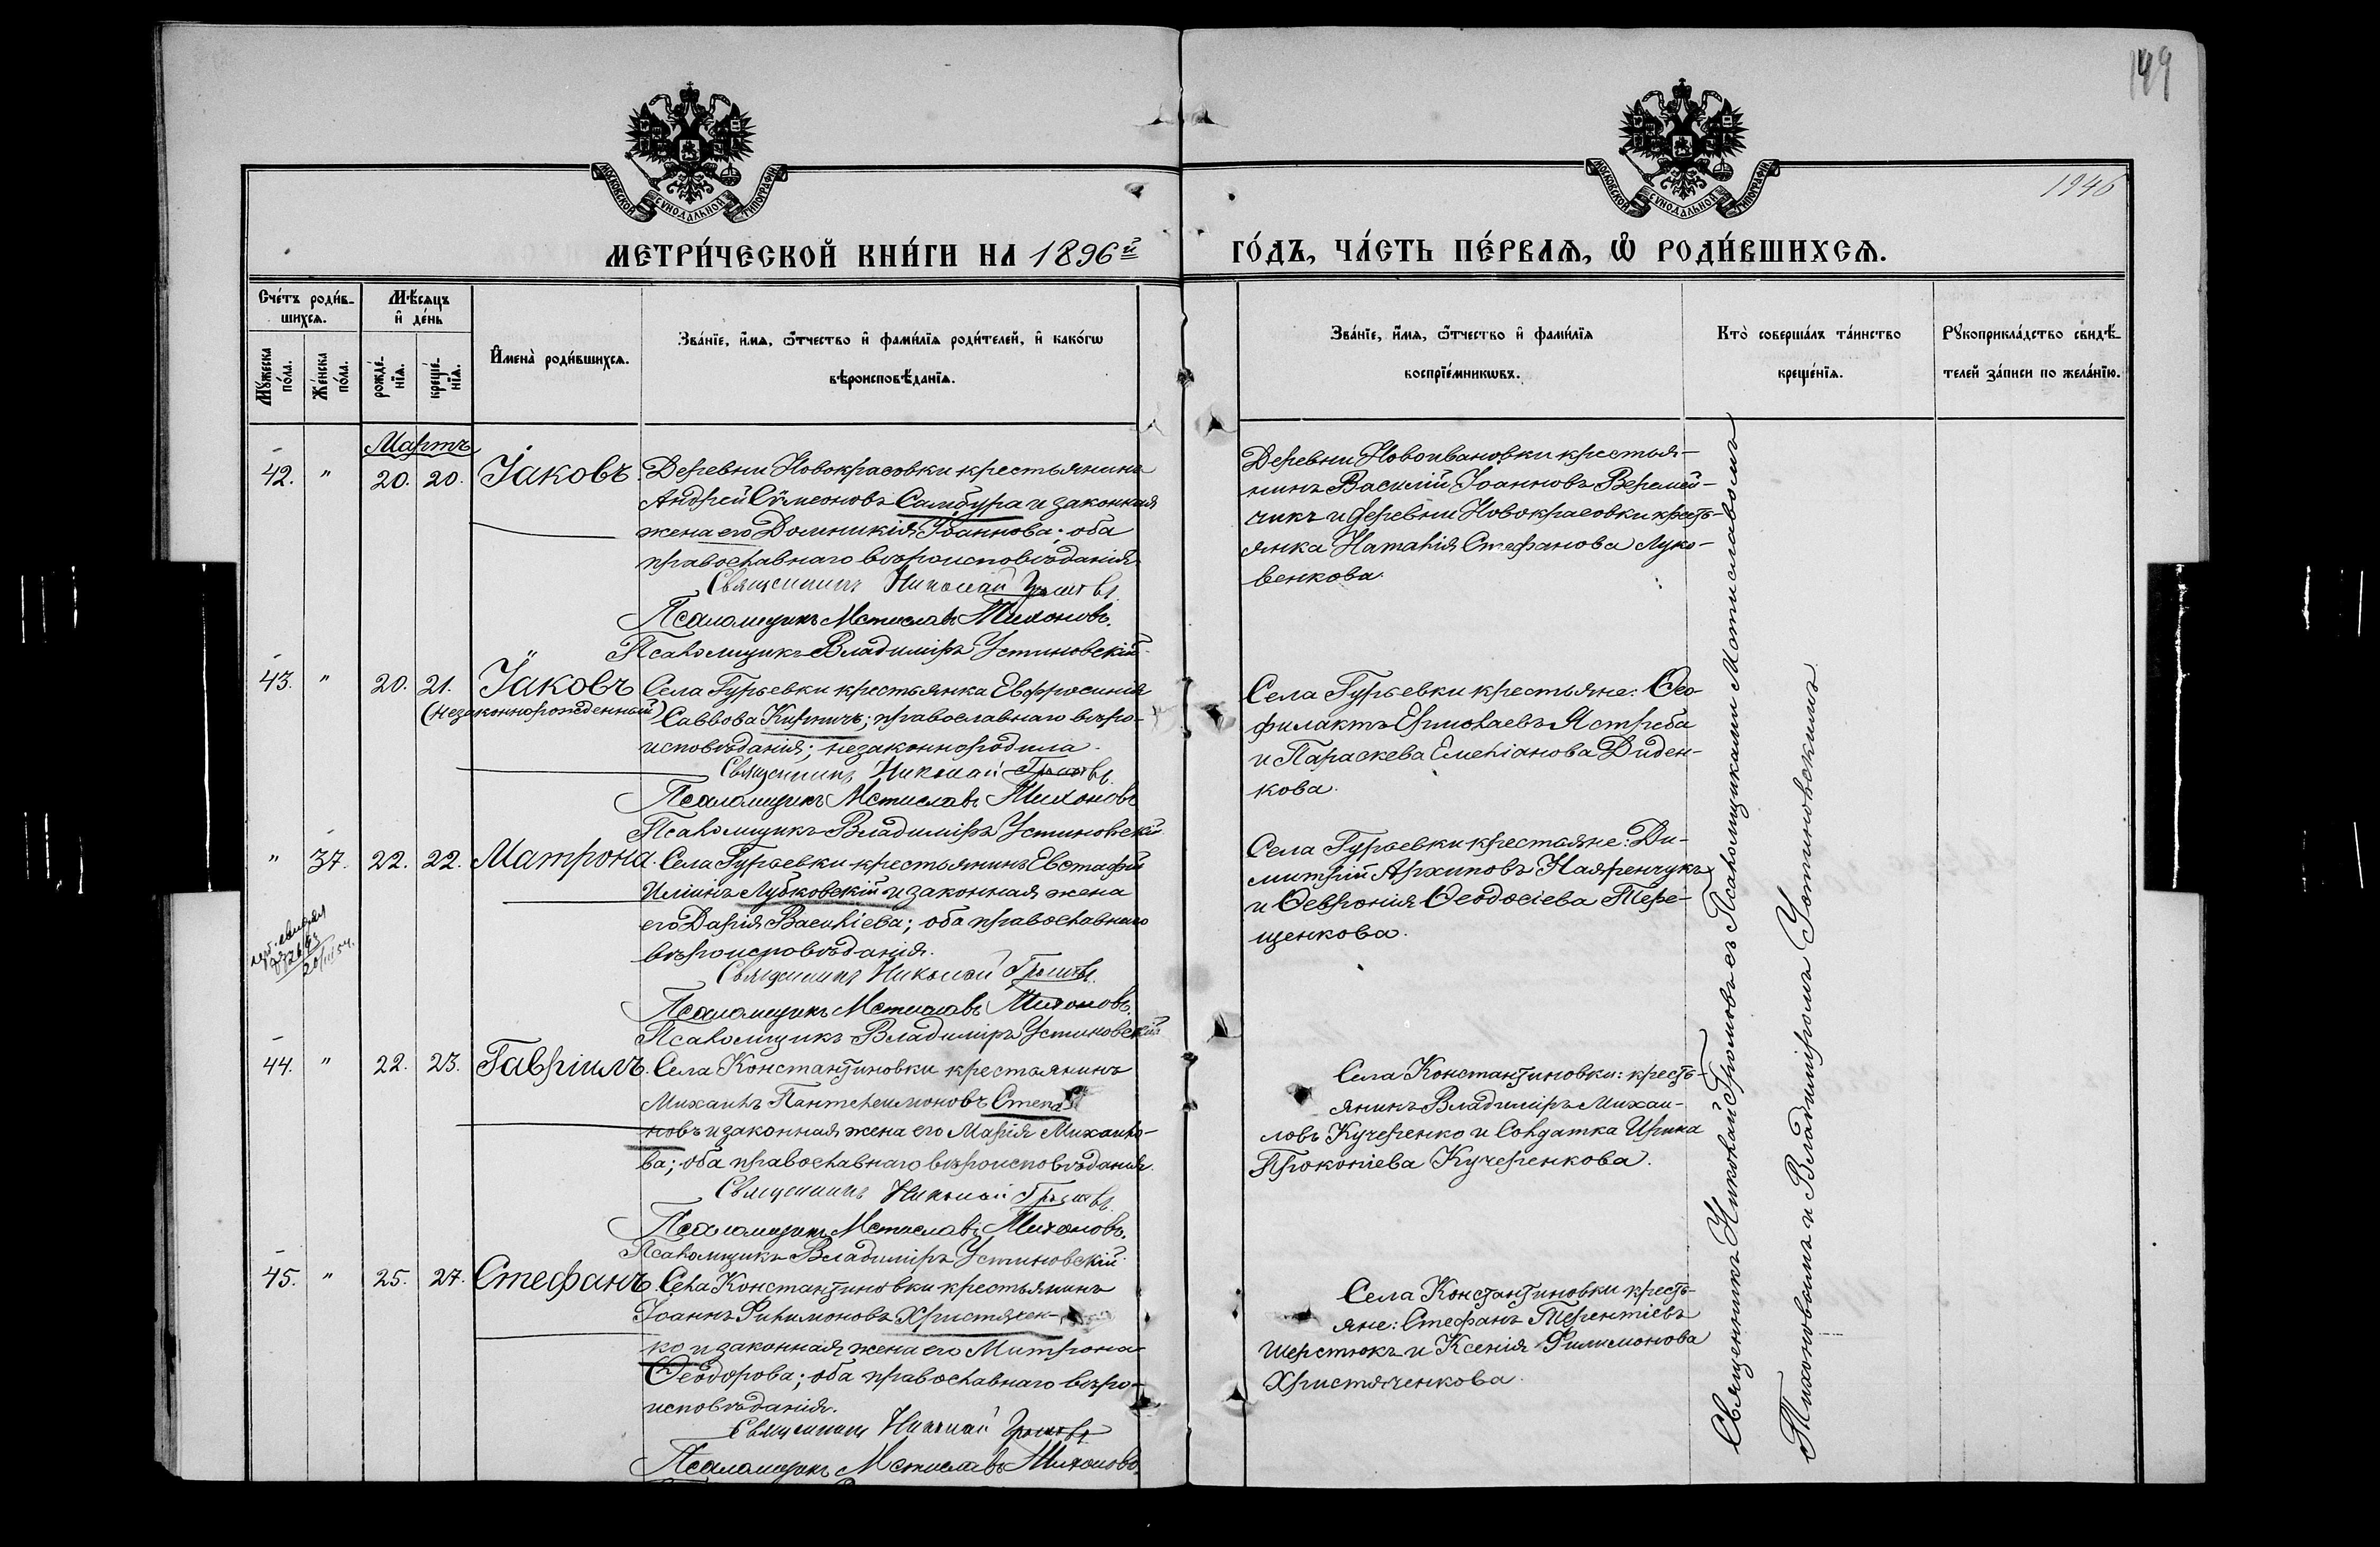 149
1946
МОСКОВСКОЙ СѴНОДАЛЬНОЙ ТИПОГРАФІИ
МОСКОВСКОЙ СѴНОДАЛЬНОЙ ТИПОГРАФІИ
МЕТРИ́ЧЕСКОЙ КНИ́ГИ НА 1896й
ГО́ДЪ, ЧА́СТЬ ПЕ́РВАѦ, Ѡ҆ РОДИ́ВШИХСѦ.
Сче́тъ роди́в-
шихсѧ.
Мꙋ́жеска по́ла.
Же́нска по́ла.
Мѣ́сѧцъ
и҆ де́нь
рожде́-
нїѧ.
креще́-
нїѧ.
И҆мена̀ роди́вшихсѧ.
Зва́нїе, и҆́мѧ, ѻ҆́тчество и҆ фами́лїѧ роди́телей, и҆ како́гѡ
вѣроисповѣ́данїѧ.
Зва́нїе, и҆́мѧ, ѻ҆́тчество и҆ фами́лїѧ
воспрїе́мникѡвъ.
Кто̀ соверша́лъ та́инство
креще́нїѧ.
Рꙋкоприкла́дство свидѣ́-
телей за́писи по жела́нїю.
Мартъ
42. " 20. 20. Іаковъ.
Деревни Новокрасовки крестьянинъ
Андрей Сѵмеоновъ Самбура и законная
жена его Домникія Іоаннова; оба
православнаго вѣроисповѣданія.
Священникъ Николай Громовъ.
Псаломщикъ Мстиславъ Тихоновъ.
Псаломщикъ Владиміръ Устиновскій.
Деревни Новоивановки крестья-
нинъ Василій Іоанновъ Веремей-
чикъ и деревни Новокрасовки кресть-
янка Наталія Стефанова Луко-
венкова.
43. " 20. 21. Іаковъ
(незаконнорожденный)
Села Гурьевки крестьянка Евфросинія
Саввова Кирпичъ; православнаго вѣро-
исповѣданія; незаконнородила.
Священникъ Николай Громовъ.
Псаломщикъ Мстиславъ Тихоновъ
Псаломщикъ Владиміръ Устиновскій.
Села Гурьевки крестьяне: Ѳео-
филактъ Ермолаевъ Ястреба
и Параскева Емеліанова Диден-
кова.
" 37. 22. 22. Матрона.
Села Гурьевки крестьянинъ Евстафій
Илiинъ Лубковскій и законная жена
его Дарія Василіева; оба православнаго
вѣроисповѣданія.
Священникъ Николай Громовъ.
Псаломщикъ Мстиславъ Тихоновъ.
Псаломщикъ Владиміръ Устиновскій
Села Гурьевки крестьяне: Ди-
митрій Архиповъ Наяренчукъ
и Ѳевронія Ѳеодосіева Тере-
щенкова.
44. " 22. 23. Гавріилъ.
Села Константиновки крестьянинъ
Михаилъ Пантелеимоновъ Степа-
новъ и законная жена его Марія Михаило-
ва; оба православнаго вѣроисповѣданія.
Священникъ Николай Громовъ.
Псаломщикъ Мстиславъ Тихоновъ.
Псаломщикъ Владиміръ Устиновскій.
Села Константиновки: кресть-
янинъ Владиміръ Михаи-
ловъ Кучеренко и солдатка Ирина
Прокопіева Кучеренкова.
45. " 25. 27. Стефанъ.
Села Константиновки крестьянинъ
Іоаннъ Филимоновъ Христичен-
ко и законная жена его Митрона
Ѳеодорова; оба православнаго вѣро-
исповѣданія.
Священникъ Николай Громовъ
Псаломщикъ Мстиславъ Тихоновъ.
Села Константиновки кресть-
яне: Стефанъ Терентіевъ
Шерстюкъ и Ксенія Филимонова
Христиченкова.
Священникъ Николай Громовъ съ Псаломщиками Мстиславомъ
Тихоновымъ и Владиміромъ Устиновскимъ.